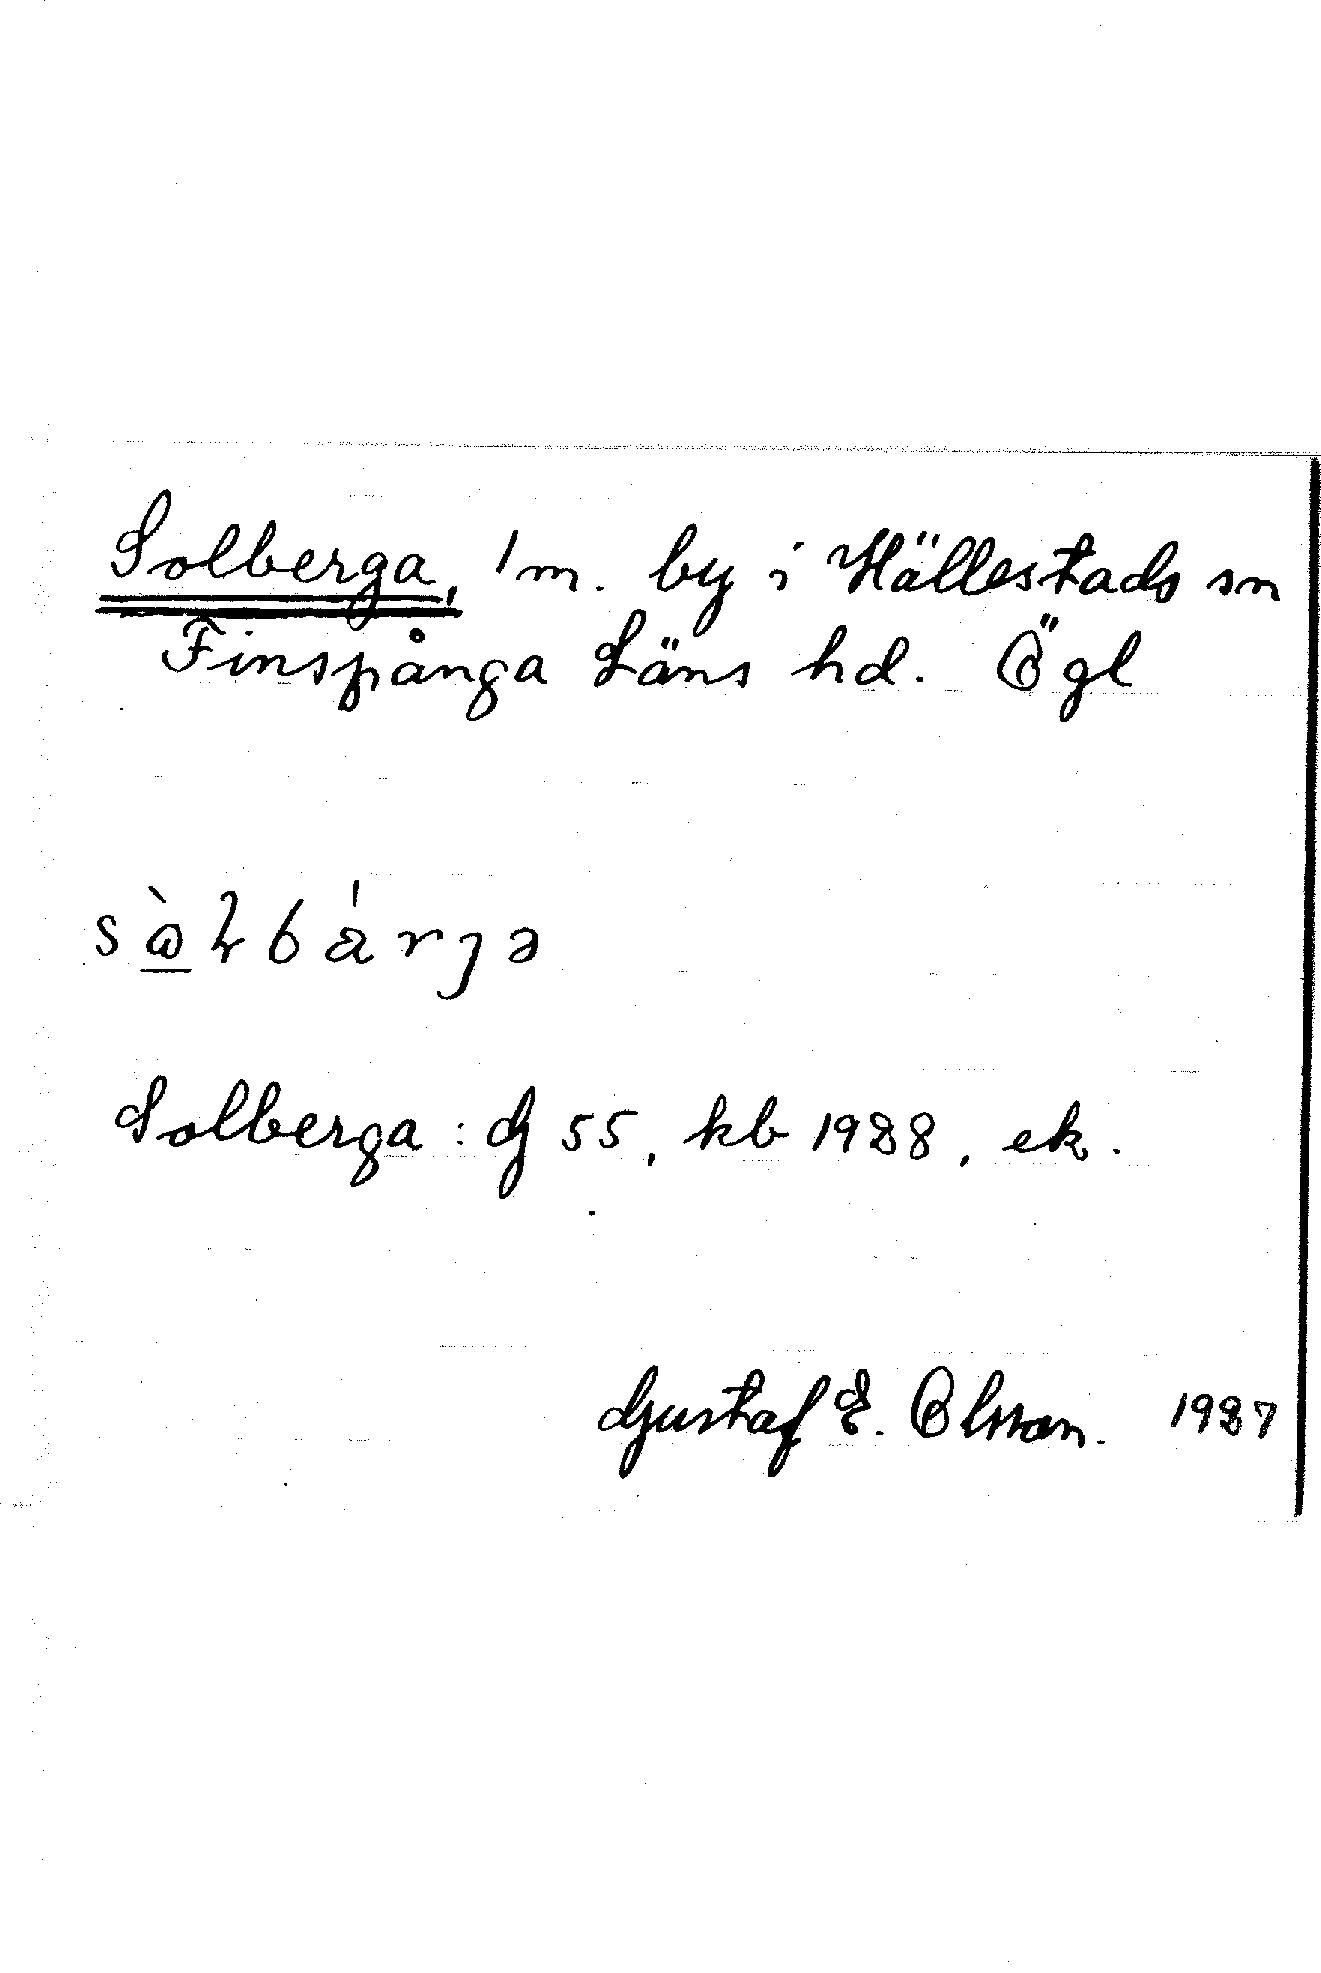 Solberga, 1 m. by i Hällestads sn
Finspånga Läns hd. Ögl
Solberga: G 55, kb 1988, ek.
Gustaf E. Olsson. 1987